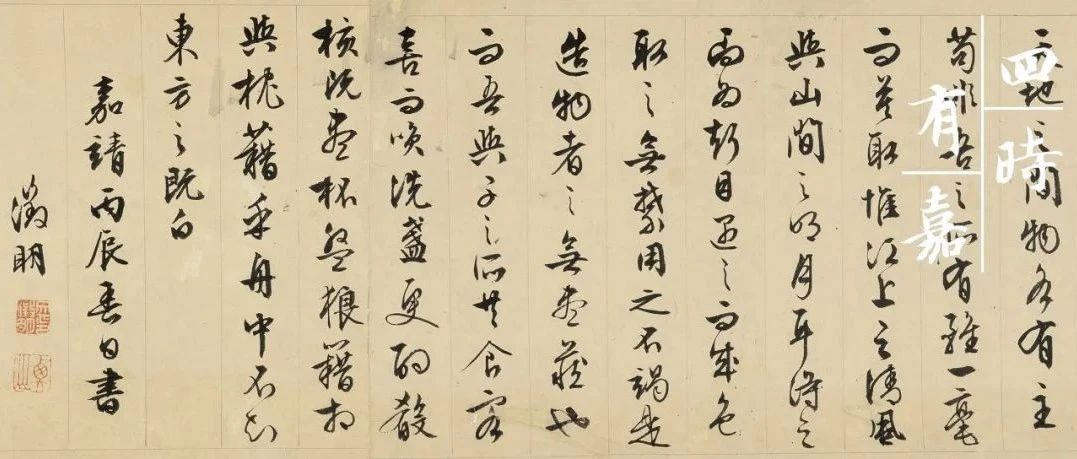 四時
有嘉
天地之間物各有主
苟非吾之所有雖一毫
而莫取惟江上之清風
與山間之明月耳得之
而為聲目遇之而成色
取之無禁用之不竭是
造物者之無盡藏也
而吾與子之所共食客
喜而笑洗盞更酌殽
核既盡杯盤狼籍相
與枕藉乎舟中不知
東方之既白
嘉靖丙辰春日書
徵明